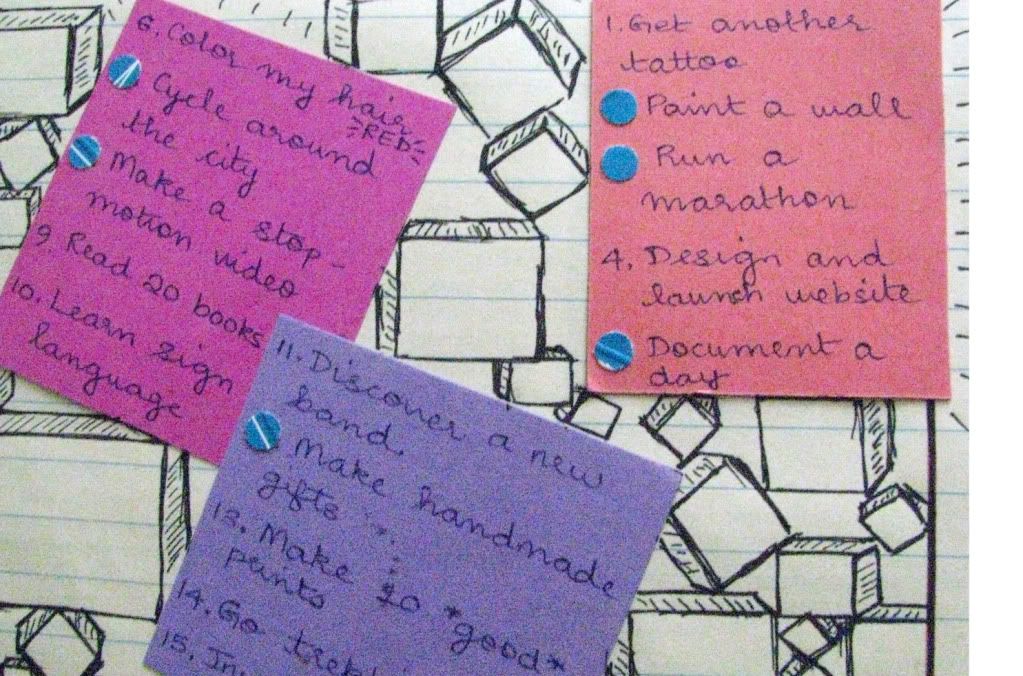 1. Get another
tattoo
Paint a wall
Run a
marathon
4. Design and
launch website
Document a
day
6. Color my hair
RED
Cycle around
the city
Make a stop-
motion video
9. Read 20 books
10. Learn sign
language
11. Discover a new
band.
Make handmade
gifts
13. Make 20 *good*
prints
14. Go
15.